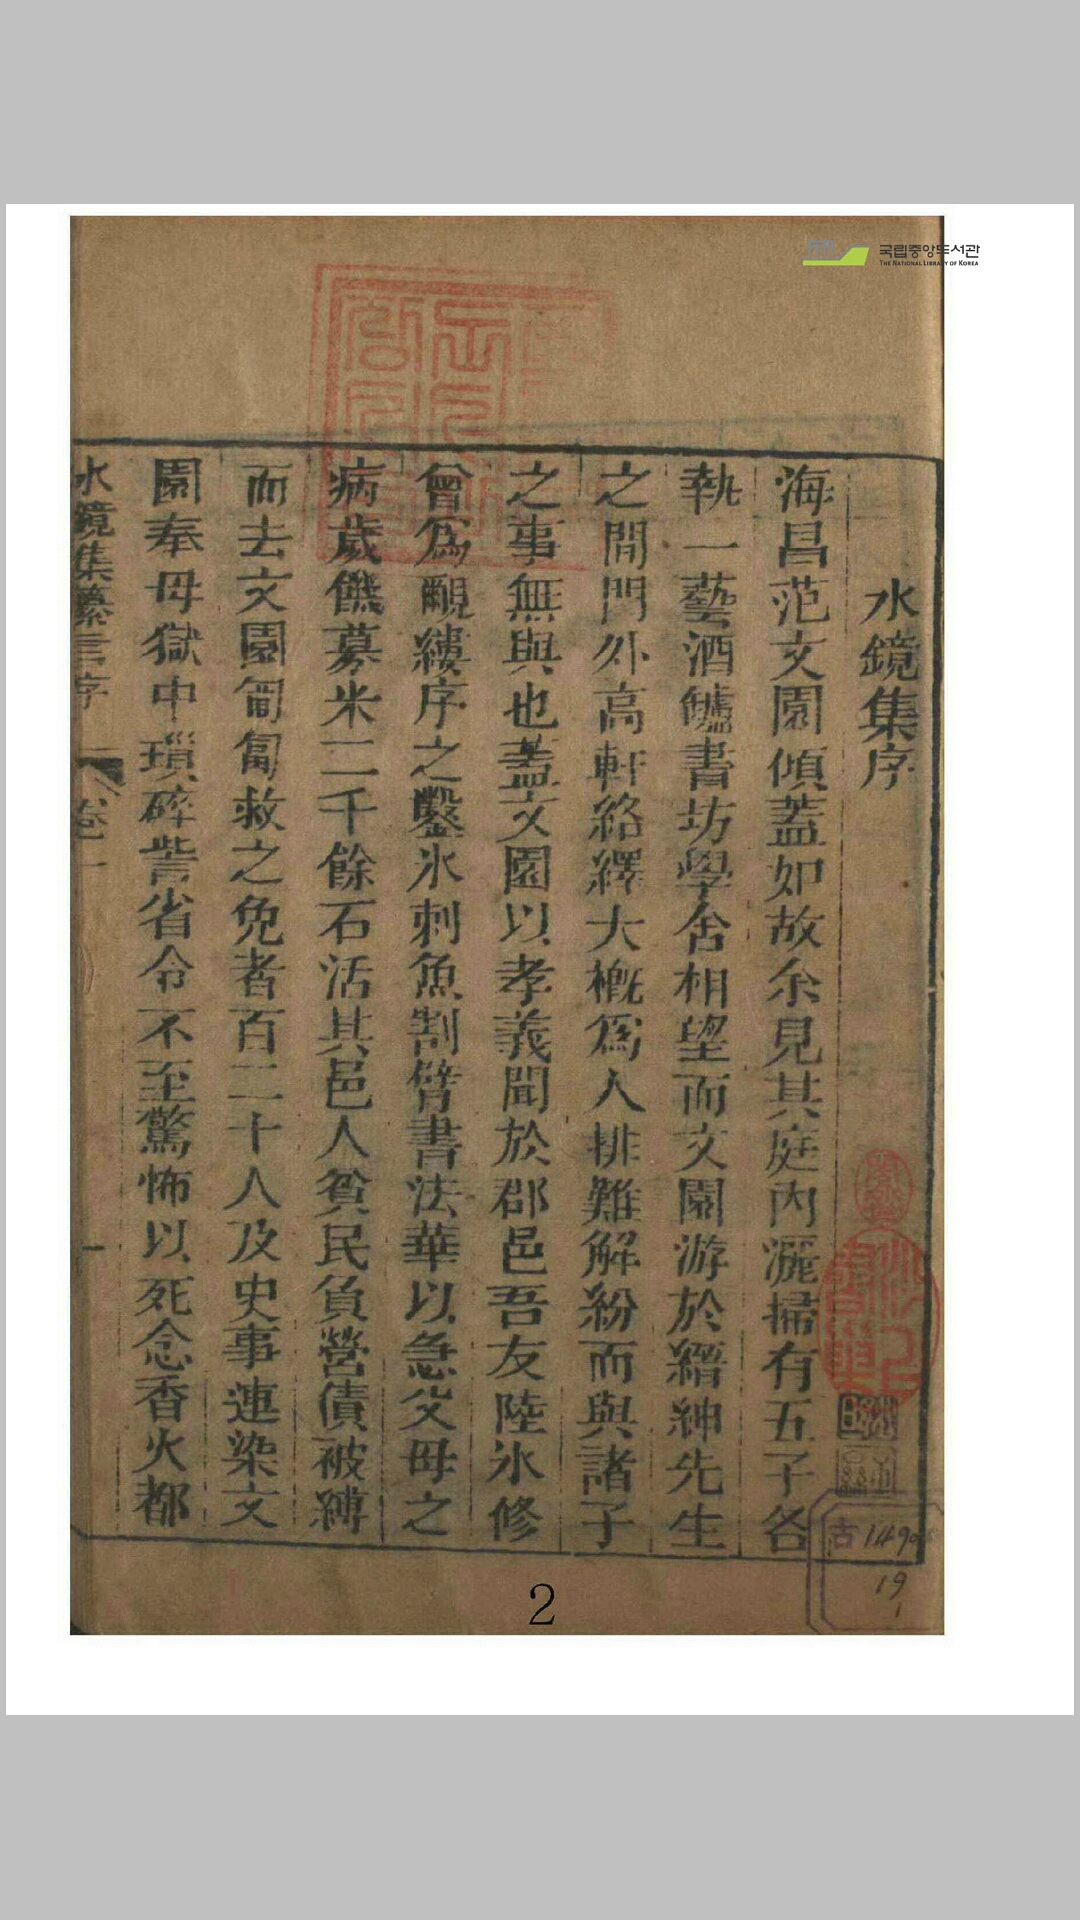 국립중앙도서관
THE NATIONAL LIBRARY OF KOREA
水鏡集序
海昌范文園傾蓋如故余見其庭內灑掃有五子各
執一藝酒鑪書坊學舍相望而文園游於縉紳先生
之間門外高軒絡繹大槪爲人排難解紛而與諸子
之事無與也蓋文園以孝義聞於郡邑吾友陸氷修
曾爲覼縷序之鑿氷刺魚割臂書法華以急父母之
病歲饑募米二千餘石活其邑人貧民負營債被縛
而去文園匍匐救之免者百二十人及史事連染文
園奉母獄中瑣碎訾省令不至驚怖以死念香火都
水鏡集纂言序
卷一
一
古1490
19
1
2